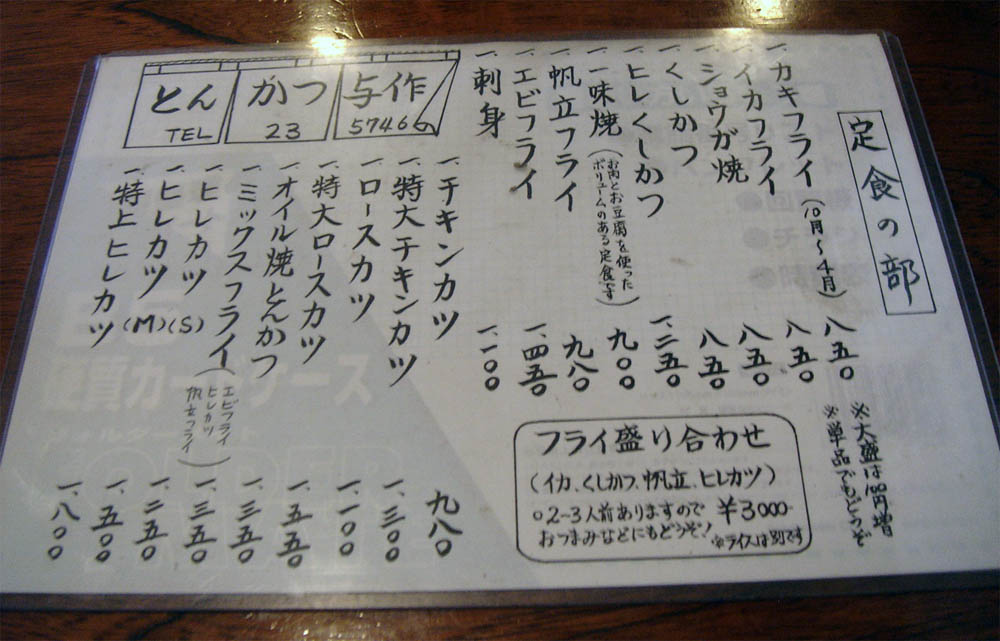 定食の部
一、カキフライ(10月〜4月) 八五〇
一、イカフライ 八五〇
一、ショウが焼 八五〇
一、くしかつ 八五〇
一、ヒレくしかつ 一、二五〇
一、一味焼 九〇〇
(お肉とお豆腐を使った
ボリュームのある定食です)
一、帆立フライ 九八〇
一、エビフライ 一、四五〇
一、刺身 一、一〇〇
※大盛は100円増
※単品でもどうぞ
フライ盛り合わせ
(イカ、くしかつ、帆立、ヒレカツ)
○2-3人前ありますので ¥3000-
おつまみなどにもどうぞ! ※ライスは別です
とんかつ与作
TEL 23 5746
一、チキンカツ 九八〇
一、特大チキンカツ 一、三〇〇
一、ロースカツ 一、一〇〇
一、特大ロースカツ 一、五五〇
一、オイル焼とんかつ 一、三五〇
一、ミックスフライ 一、三五〇
(エビフライ
ヒレカツ
帆立フライ)
一、ヒレカツ(S) 一、二五〇
一、ヒレカツ(M) 一、五〇〇
一、特上ヒレカツ 一、八〇〇